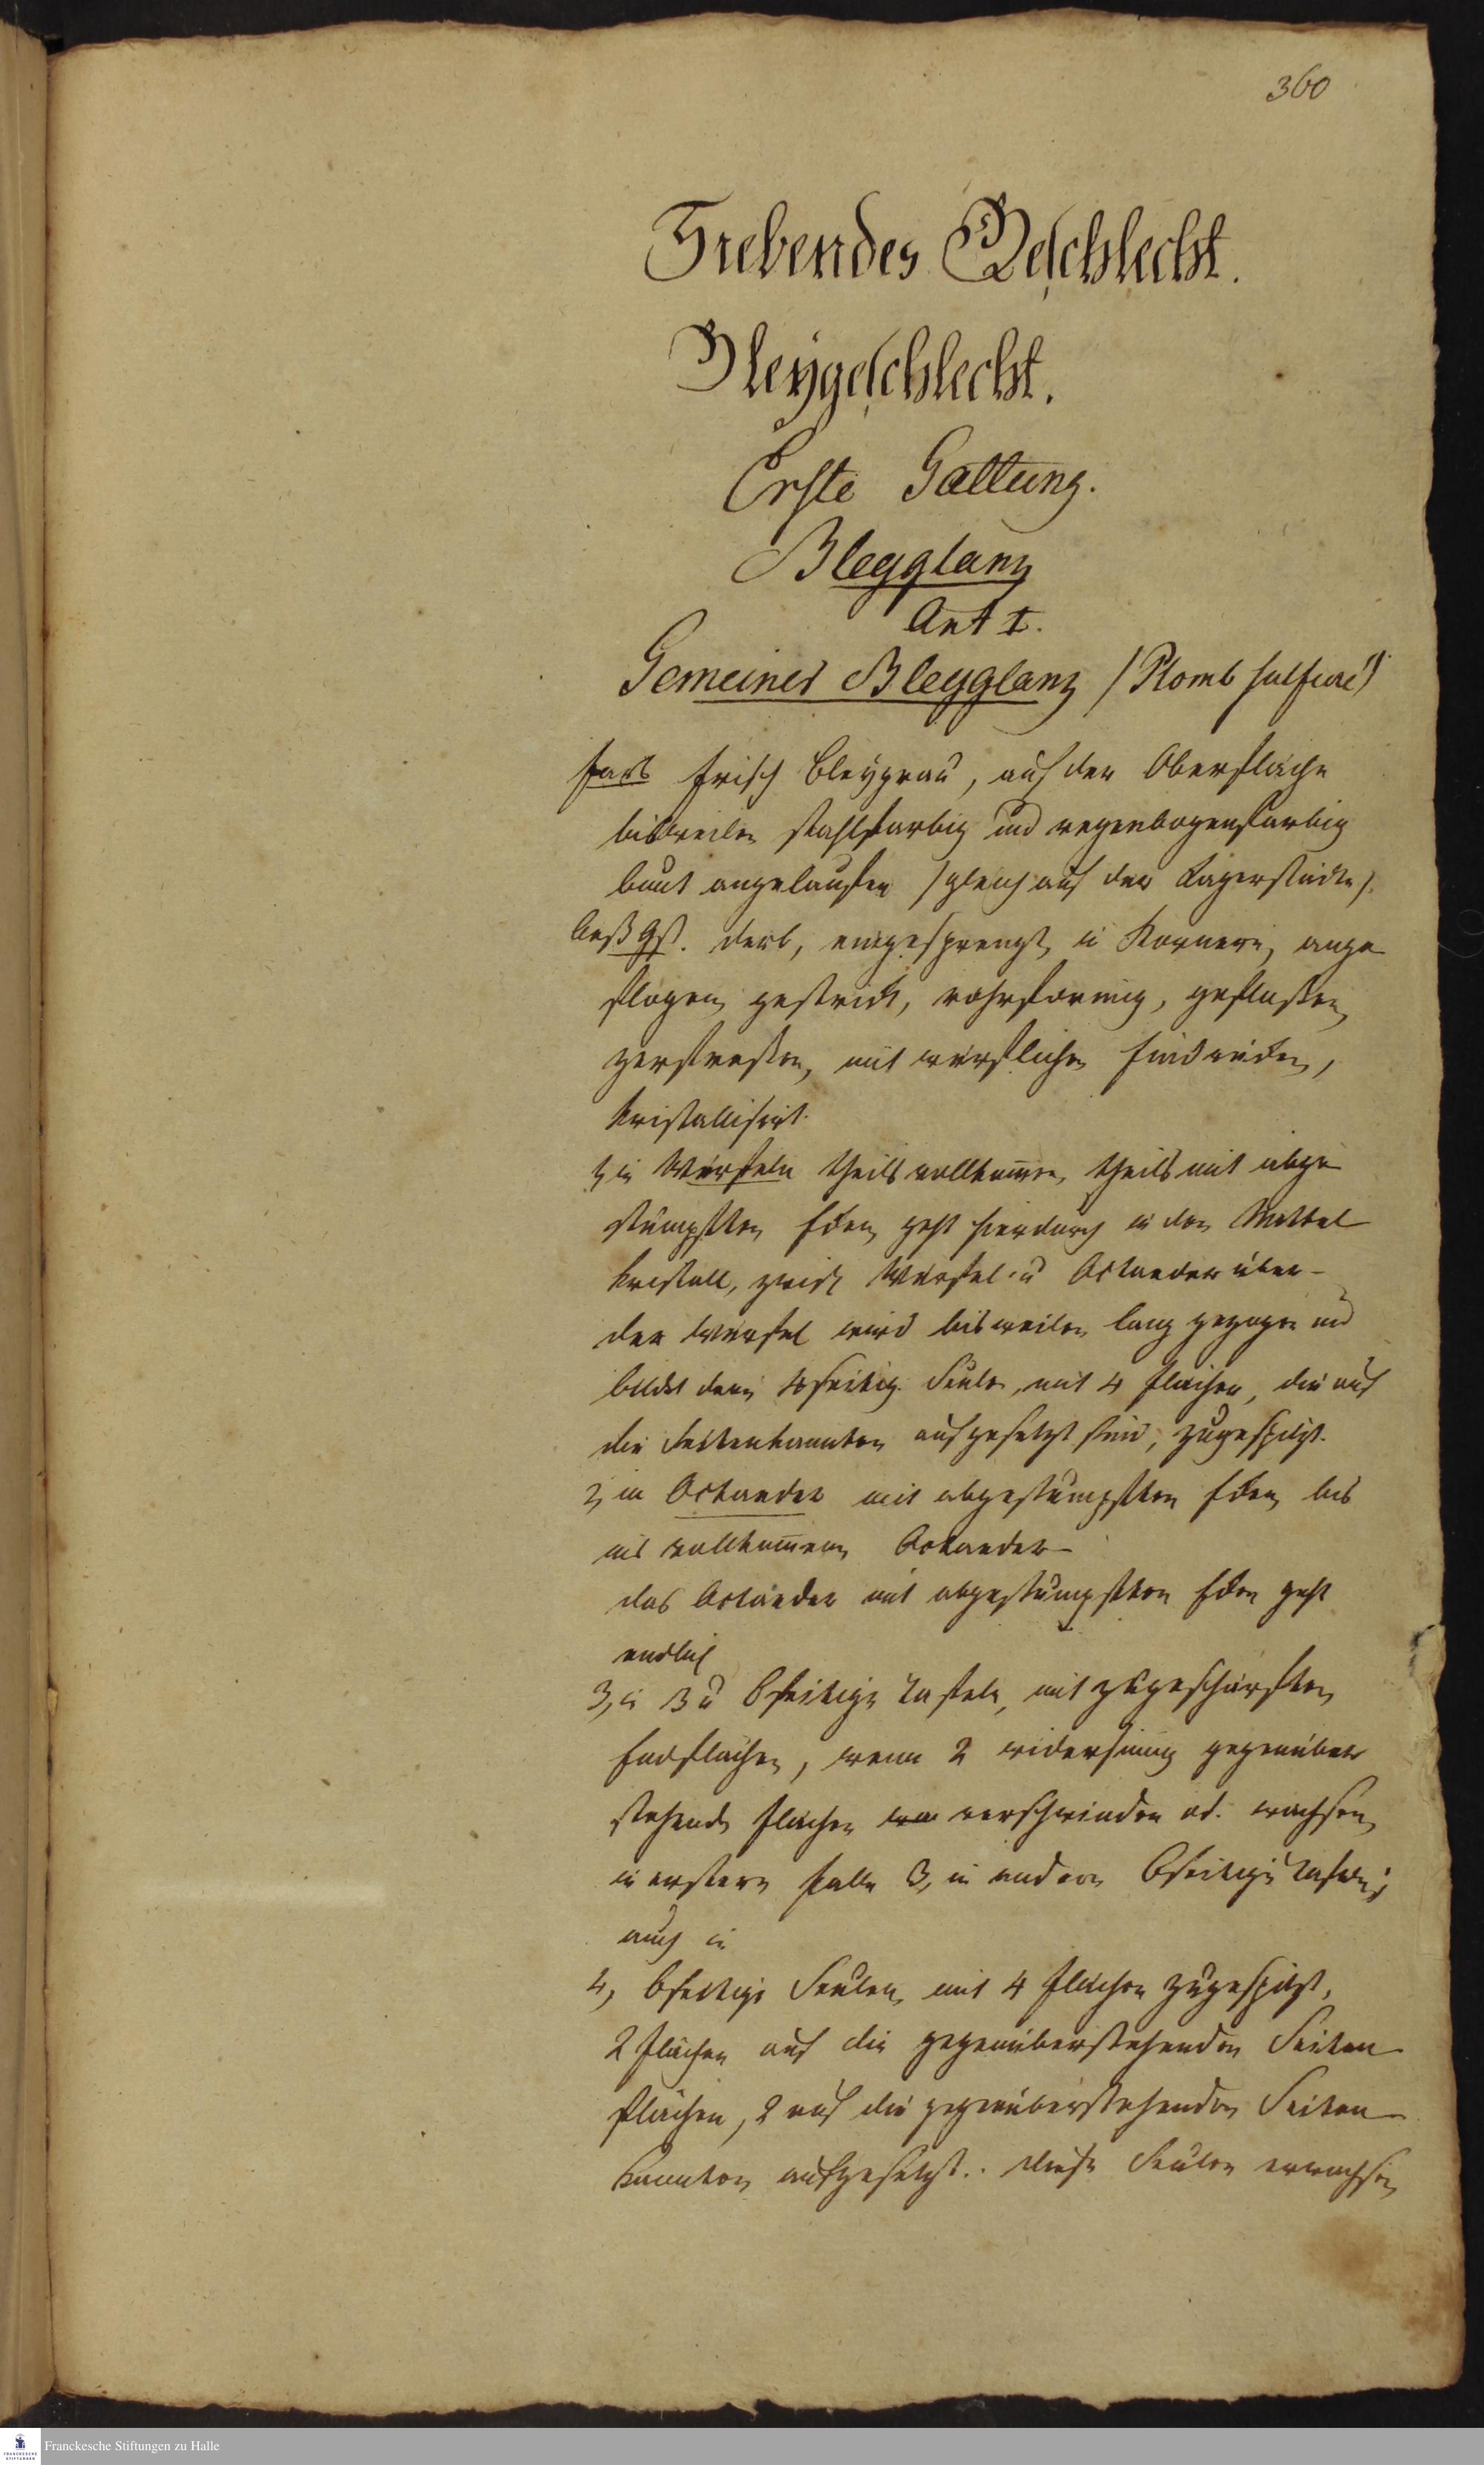 360
Siebendes Geschlecht.
Bleygeschlecht.
Erste Gattung.
Bleyglanz
Art I.
Gemeiner Bleyglanz /Plomb sulfuré/
Farb frisch bleygrau, auf der Oberfläche
bisweilen stahlfarbig und regenbogenfarbig
bunt angelaufen /gleich auf der Lagerstädte/.
Aeß Gst. derb, eingesprengt, in Körnern, ange
flogen, gestrickt, röhrförmig, geflossen,
zerfressen, mit würflichen Eindrücken,
kristallisirt.
1, in Würfeln theils vollkommen, theils mit abge
stumpften Ecken, geht hierdurch in den Mittel
kristall, zwisch Würfel u Octaeder über-
der Würfel wird bisweilen lang gezogen und
bildet dann 4seitig. Seule, mit 4 Flächen, die auf
die Seitenkannten aufgesetzt sind, zugespizt.
2, in Octaeder mit abgestumpften Ecken, bis
ins vollkommene Octaeder-
das Octaeder mit abgestumpften Ecken geht
endlich
3, in 3 u 6seitige Tafeln, mit zugeschärften
Endflächen, wenn 2 widersinnig gegenüber
stehende Flächen verschwinden od. wachsen,
in erstern Falle 3, in andern 6seitige Tafeln;
auch in
4, 6seitige Seulen, mit 4 Flächen zugespizt,
2 Flächen auf die gegenüberstehenden Seiten
flächen, 2 auf die gegenüberstehenden Seiten
kannten aufgesetzt.. diese Seulen erwachsen
Franckesche Stiftungen zu Halle